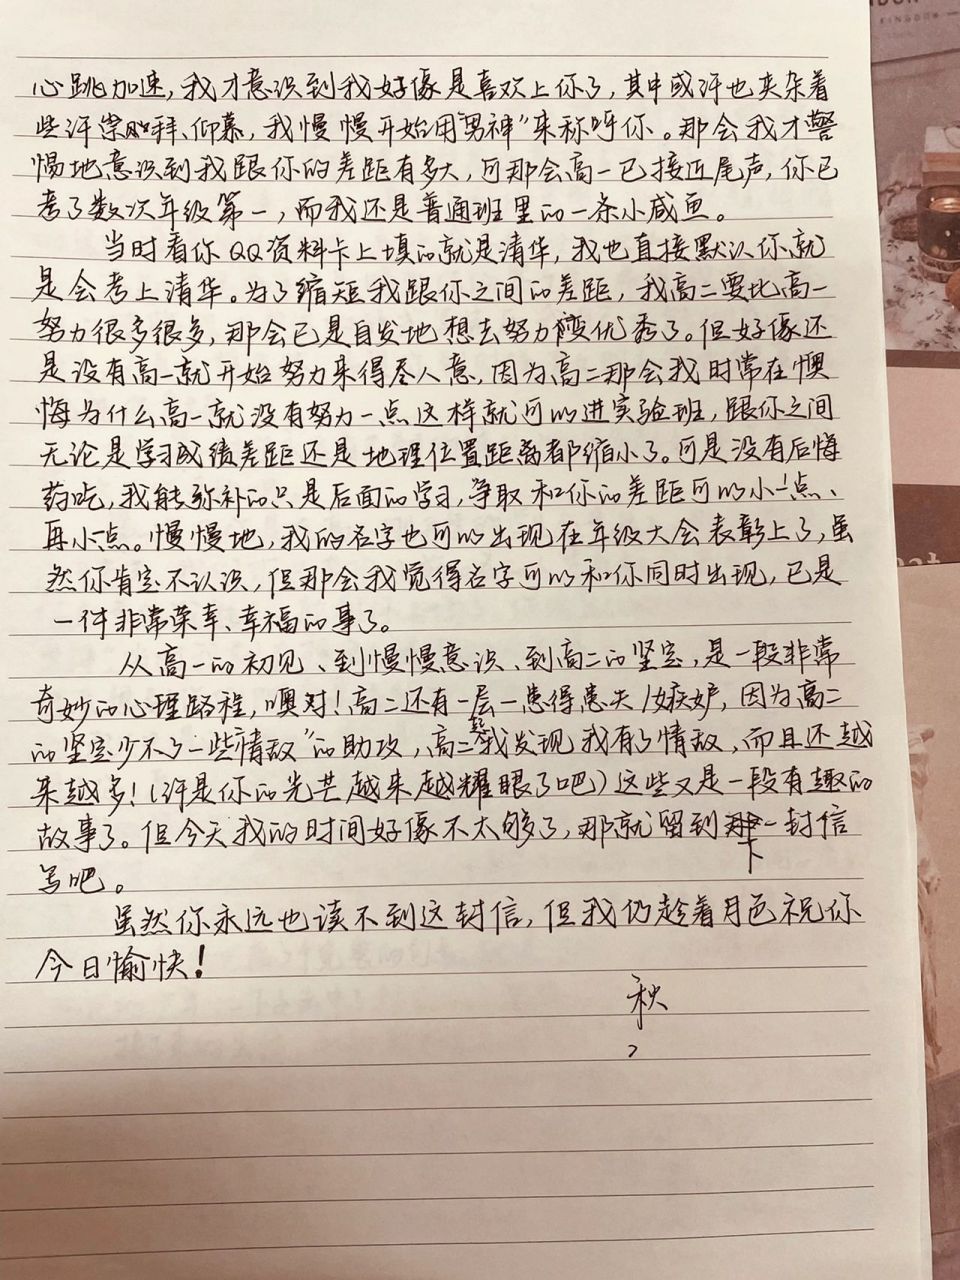 心跳加速，我才意识到我好像是喜欢上你了，其中或许也夹杂着
些许崇拜、仰慕，我慢慢开始用"男神"来称呼你。那会我才警
惕地意识到我跟你的差距有多大，可那会高一已接近尾声，你已
考了数次年级第一，而我还是普通班里的一条小咸鱼。
当时看你QQ资料卡上填的就是清华，我也直接默认你就
是会考上清华。为了缩短我跟你之间的差距，我高二要比高一
努力很多很多，那会已是自发地想去努力变优秀了。但好像还
是没有高一就开始努力来得尽人意，因为高二那会我时常在懊
悔为什么高一就没有努力一点这样就可以进实验班，跟你之间
无论是学习成绩差距还是地理位置距离都缩小了。可是没有后悔
药吃，我能弥补的只是后面的学习，争取和你的差距可以小一点、
再小点。慢慢地，我的名字也可以出现在年级大会表彰上了，虽
然你肯定不认识，但那会我觉得名字可以和你同时出现，已是
一件非常荣幸、幸福的事了。
从高一的初见、到慢慢意识、到高二的坚定，是一段非常
奇妙的心理路程，噢对！高二还有一层一患得患失/嫉妒，因为高二
的坚定少不了一些"情敌"的助攻，高二起我发现我有了情敌，而且还越
来越多！（许是你的光芒越来越耀眼了吧）这些又是一段有趣的
故事了。但今天我的时间好像不太够了，那就留到下一封信
写吧。
虽然你永远也读不到这封信，但我仍趁着月色祝你
今日愉快！
秧